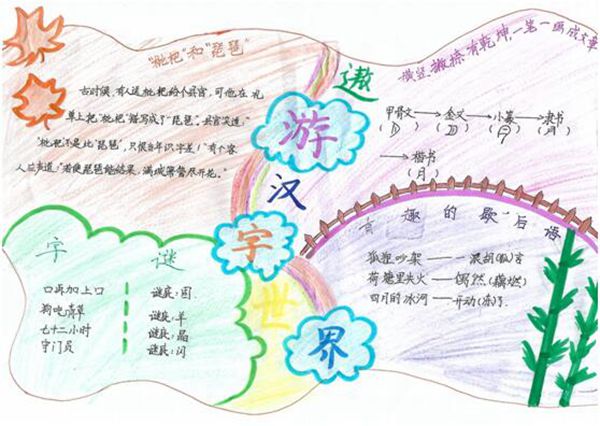 "枇杷"和"琵琶"
古时候,有人送枇杷给个县官,可他在礼
单上把"枇杷"错写成了"琵琶"。县官笑道:
"枇杷不是此"琵琶",只恨当年识字差!"有个客
人应声道:"若使琵琶能结果,满城箫管尽开花。"
遨
游
汉
字
世
界
横竖撇捺有乾坤,一笔一画成文章
甲骨文→金文→小篆→隶书
(月)
→楷书
(月)
字 谜
口再加上口 谜底:回
狗吃青草 谜底:羊
七十二小时 谜底:晶
守门员 谜底:闪
有趣的歇后语
狐狸吵架——一派胡(狐)言
荷塘里失火——偶然(藕燃)
四月的冰河——开动(冻)了